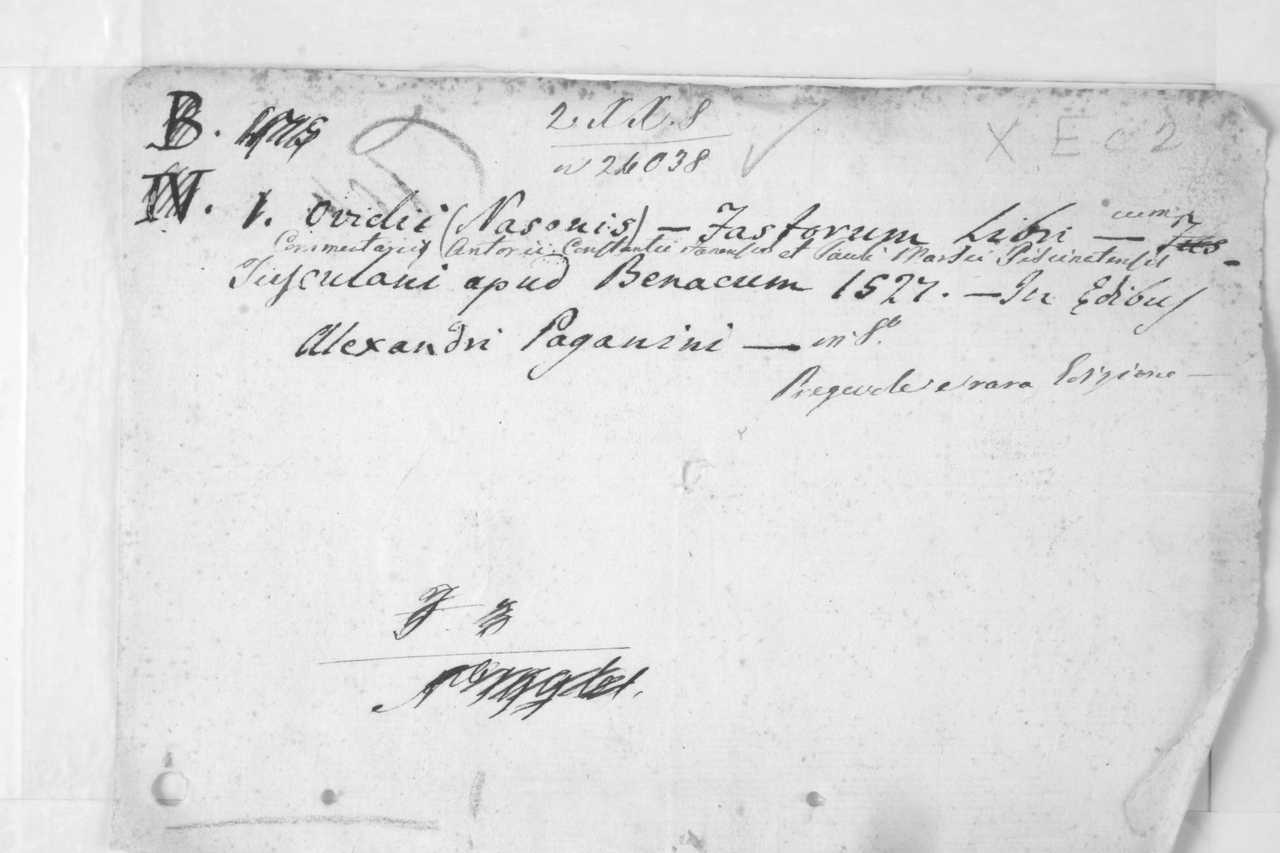 B.
2. X X. 8
X E c 2
n 26038
IV. 1. Ovidii (Nasonis) — Fastorum Libri — cum
Commentariis Antonii Constantii Fanensis et Pauli Marsii Piscinatensis
Tusculani apud Benacum 1527. — In Edibus
Alexandri Paganini — in 8.º
Pregevole e rara Edizione —